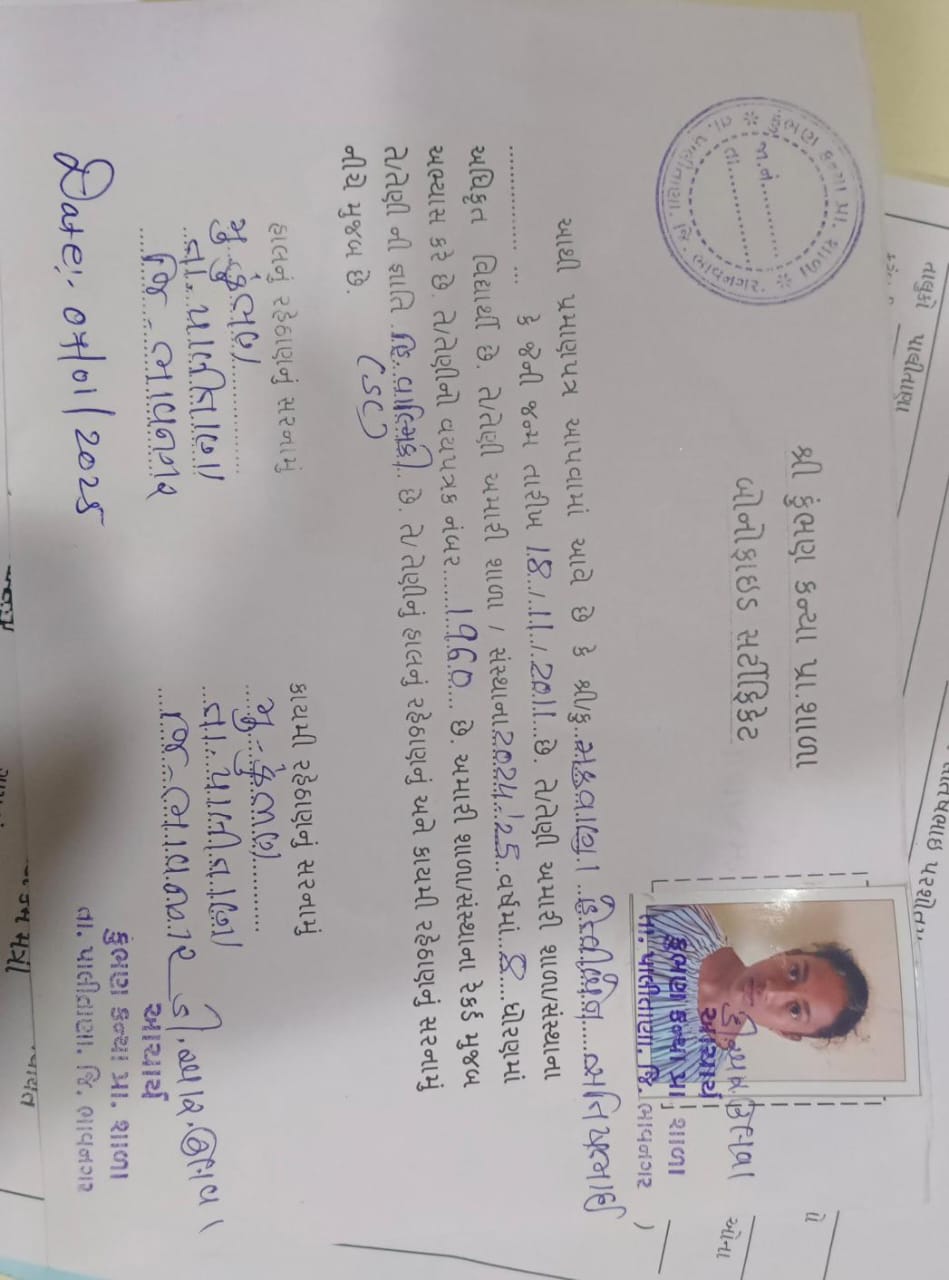 શ્રી કુંભણ કન્યા પ્રા.શાળા
બોનોફાઇડ સર્ટીફિકેટ
આથી પ્રમાણપત્ર આપવામાં આવે છે કે શ્રી/કુ. મકવાણા
કે જેની જન્મ તારીખ 18/11/2011 છે. તે/તેણી અમારી શાળા/સંસ્થાના
અધિકૃત વિદ્યાર્થી છે. તે/તેણી અમારી શાળા / સંસ્થાના 2024/25 વર્ષમાં 8 ધોરણમાં
અભ્યાસ કરે છે. તે/તેણીનો વયપત્રક નંબર 1960 છે. અમારી શાળા/સંસ્થાના રેકર્ડ મુજબ
તે/તેણી ની જ્ઞાતિ હિ. વાલ્મિકી છે. તે/તેણીનું હાલનું રહેઠાણનું અને કાયમી રહેઠાણનું સરનામું
(SC)
નીચે મુજબ છે.
હાલનું રહેઠાણનું સરનામું
મુ. કુંભણ
તા. પાલીતાણા
જિ- ભાવનગર
કાયમી રહેઠાણનું સરનામું
મુ- કુંભણ
તા. પાલીતાણા
જિ- ભાવનગર
Date:- ૦૧/૦૧/2025
આચાર્ય
કુંભણ કન્યા પ્રા. શાળા
તા. પાલીતાણા. જિ. ભાવનગર
આચાર્ય
કુંભણ કન્યા પ્રા. શાળા
તા. પાલીતાણા. જિ. ભાવનગર
જા.નં.
તા.
તાલુકો પાલીતાણા